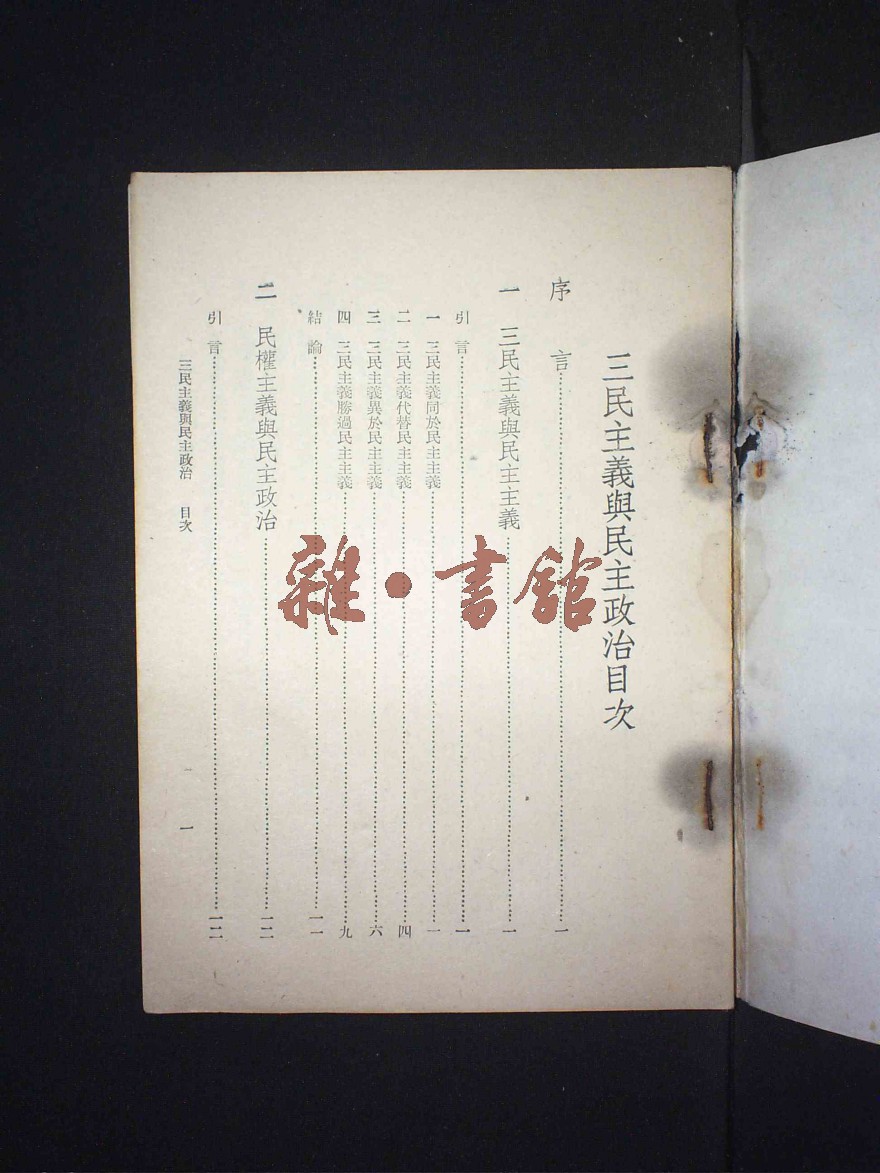 三民主義與民主政治目次
序言……一
一 三民主義與民主主義……一
引言……一
一 三民主義同於民主主義……一
二 三民主義代替民主主義……四
三 三民主義異於民主主義……六
四 三民主義勝過民主主義……九
結論……一一
二 民權主義與民主政治……一二
引言……一二
三民主義與民主政治 目次
一
雜·書館